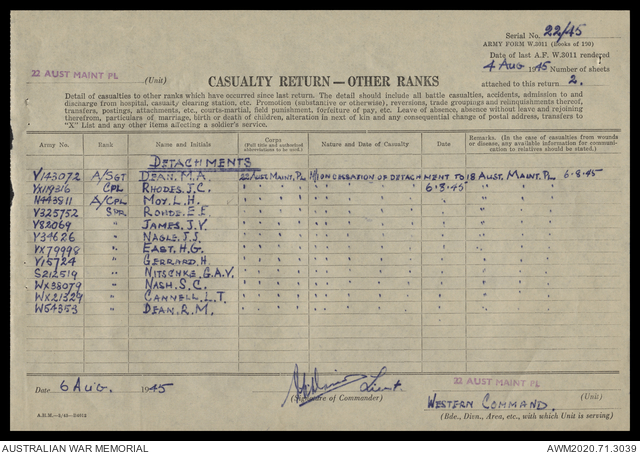 Serial No. 22/45
ARMY FORM W.3011 (Books of 150)
Date of last A.F. W.3011 rendered
4 AUG 1945 Number of sheets
attached to this return 2.
22 AUST MAINT PL (Unit)
CASUALTY RETURN—OTHER RANKS
Detail of casualties to other ranks which have occurred since last return. The detail should include all battle casualties, accidents, admission to and
discharge from hospital, casualty clearing station, etc. Promotion (substantive or otherwise), reversions, trade groupings and relinquishments thereof,
transfers, postings, attachments, etc., courts-martial, field punishment, forfeiture of pay, etc. Leave of absence, absence without leave and rejoining
therefrom, particulars of marriage, birth or death of children, alteration in next of kin and any consequential change of postal address, transfers to
"X" List and any other items affecting a soldier's service.
Army No. Rank Name and Initials Corps (Full title and authorised abbreviations to be used.) Nature and Date of Casualty Date Remarks. (In the case of casualties from wounds or disease, any available information for communication to relatives should be stated.)
DETACHMENTS
V143072 A/SGT DEAN. M.A. 22 AUST MAINT. PL. ON CESSATION OF DETACHMENT TO 18 AUST. MAINT. PL 6.8.45
CPL RHODES. J.C. " " " " " " 6.8.45 " " "
A/CPL MOY. L.H. " " " " " " " " " "
V325752 SPR " " " " " " " " " "
V82069 " JAMES. J.V. " " " " " " " " " "
V34626 " NAGLE. J.J. " " " " " " " " " "
VX79998 " EAST. H.G. " " " " " " " " " "
V15724 " GERRARD. H. " " " " " " " " " "
S212519 " NITSCHKE. G.A.V. " " " " " " " " " "
WX38079 " NASH. S.C. " " " " " " " " " "
WX21329 " CANNELL. L.T. " " " " " " " " " "
W54353 " DEAN. R.M. " " " " " " " " " "
Date 6 AUG. 1945
Lieut.
(Signature of Commander)
22 AUST MAINT PL (Unit)
WESTERN COMMAND.
(Bde., Divn., Area, etc., with which Unit is serving)
AUSTRALIAN WAR MEMORIAL
AWM2020.71.3039